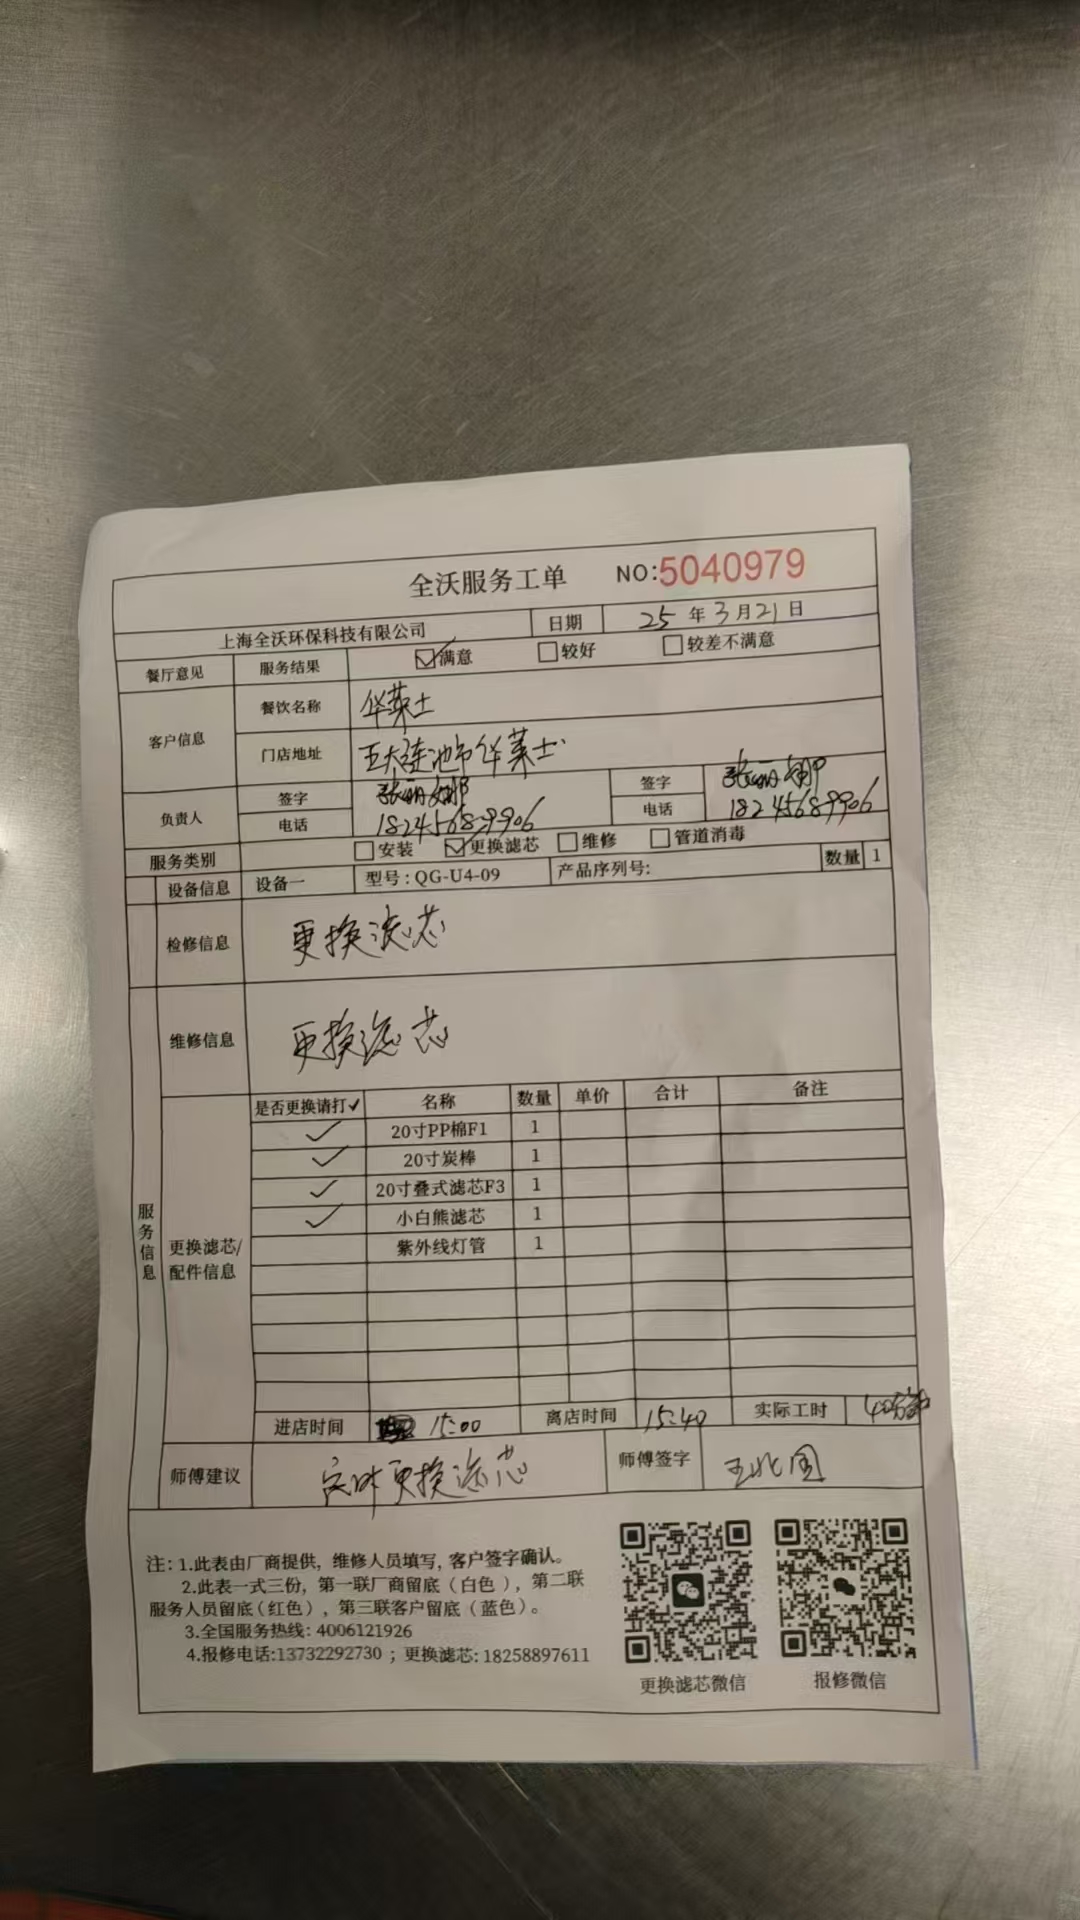 全沃服务工单 NO:5040979
上海全沃环保科技有限公司 日期 25 年 3 月 21 日
餐厅意见 服务结果 ☑满意 □较好 □较差不满意
客户信息 餐饮名称 华莱士
门店地址 五大连池市华莱士
负责人 签字 张丽娜 签字 张丽娜
电话 18245689906 电话 18245689906
服务类别 □安装 ☑更换滤芯 □维修 □管道消毒
设备信息 设备一 型号:QG-U4-09 产品序列号: 数量 1
检修信息 更换滤芯
维修信息 更换滤芯
服务信息
更换滤芯/配件信息
是否更换请打✓ 名称 数量 单价 合计 备注
✓ 20寸PP棉F1 1
✓ 20寸炭棒 1
✓ 20寸叠式滤芯F3 1
✓ 小白熊滤芯 1
紫外线灯管 1
进店时间 15:00 离店时间 15:40 实际工时 40分钟
师傅建议 定时更换滤芯 师傅签字 王北国
注:1.此表由厂商提供,维修人员填写,客户签字确认。
2.此表一式三份,第一联厂商留底(白色),第二联
服务人员留底(红色),第三联客户留底(蓝色)。
3.全国服务热线:4006121926
4.报修电话:13732292730;更换滤芯:18258897611
更换滤芯微信 报修微信